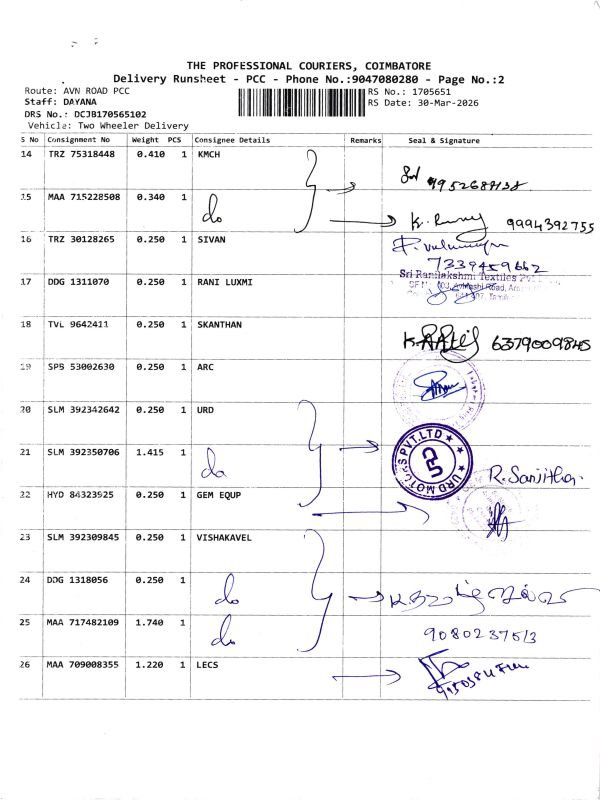 THE PROFESSIONAL COURIERS, COIMBATORE
Delivery Runsheet - PCC - Phone No.:9047080280 - Page No.:2
Route: AVN ROAD PCC
RS No.: 1705651
Staff: DAYANA
RS Date: 30-Mar-2026
DRS No.: DCJB170565102
Vehicle: Two Wheeler Delivery
S No Consignment No Weight PCS Consignee Details Remarks Seal & Signature
14 TRZ 75318448 0.410 1 KMCH
15 MAA 715228508 0.340 1 do
9994392755
16 TRZ 30128265 0.250 1 SIVAN
7339459662
17 DDG 1311070 0.250 1 RANI LUXMI
Sri Ranilakshmi Textiles
18 TVL 9642411 0.250 1 SKANTHAN
6379009845
19 SPB 53002630 0.250 1 ARC
20 SLM 392342642 0.250 1 URD
21 SLM 392350706 1.415 1 do
URD MOTORS PVT.LTD
URD
R. Sanjitha
22 HYD 84323925 0.250 1 GEM EQUP
23 SLM 392309845 0.250 1 VISHAKAVEL
24 DDG 1318056 0.250 1 do
25 MAA 717482109 1.740 1 do
9080237513
26 MAA 709008355 1.220 1 LECS